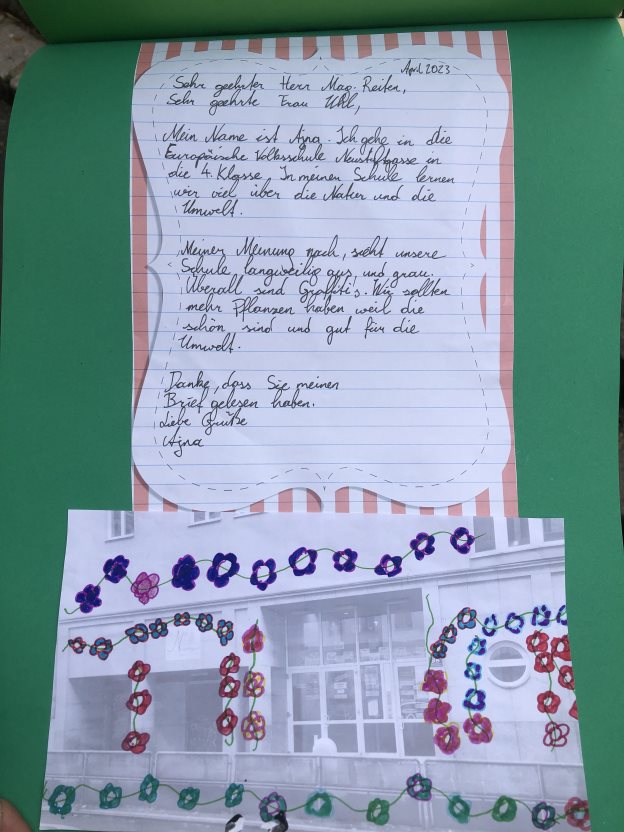 April 2023
Sehr geehrter Herr Mag. Reiter,
Sehr geehrte Frau Uhl,
Mein Name ist Ajna. Ich gehe in die
Europäische Volksschule Neustiftgasse in
die 4. Klasse. In meiner Schule lernen
wir viel über die Natur und die
Umwelt.
Meiner Meinung nach, sieht unsere
Schule langweilig aus, und grau.
Überall sind Graffiti's. Wir sollten
mehr Pflanzen haben weil die
schön sind und gut für die
Umwelt.
Danke, dass Sie meinen
Brief gelesen haben.
Liebe Grüße
Ajna